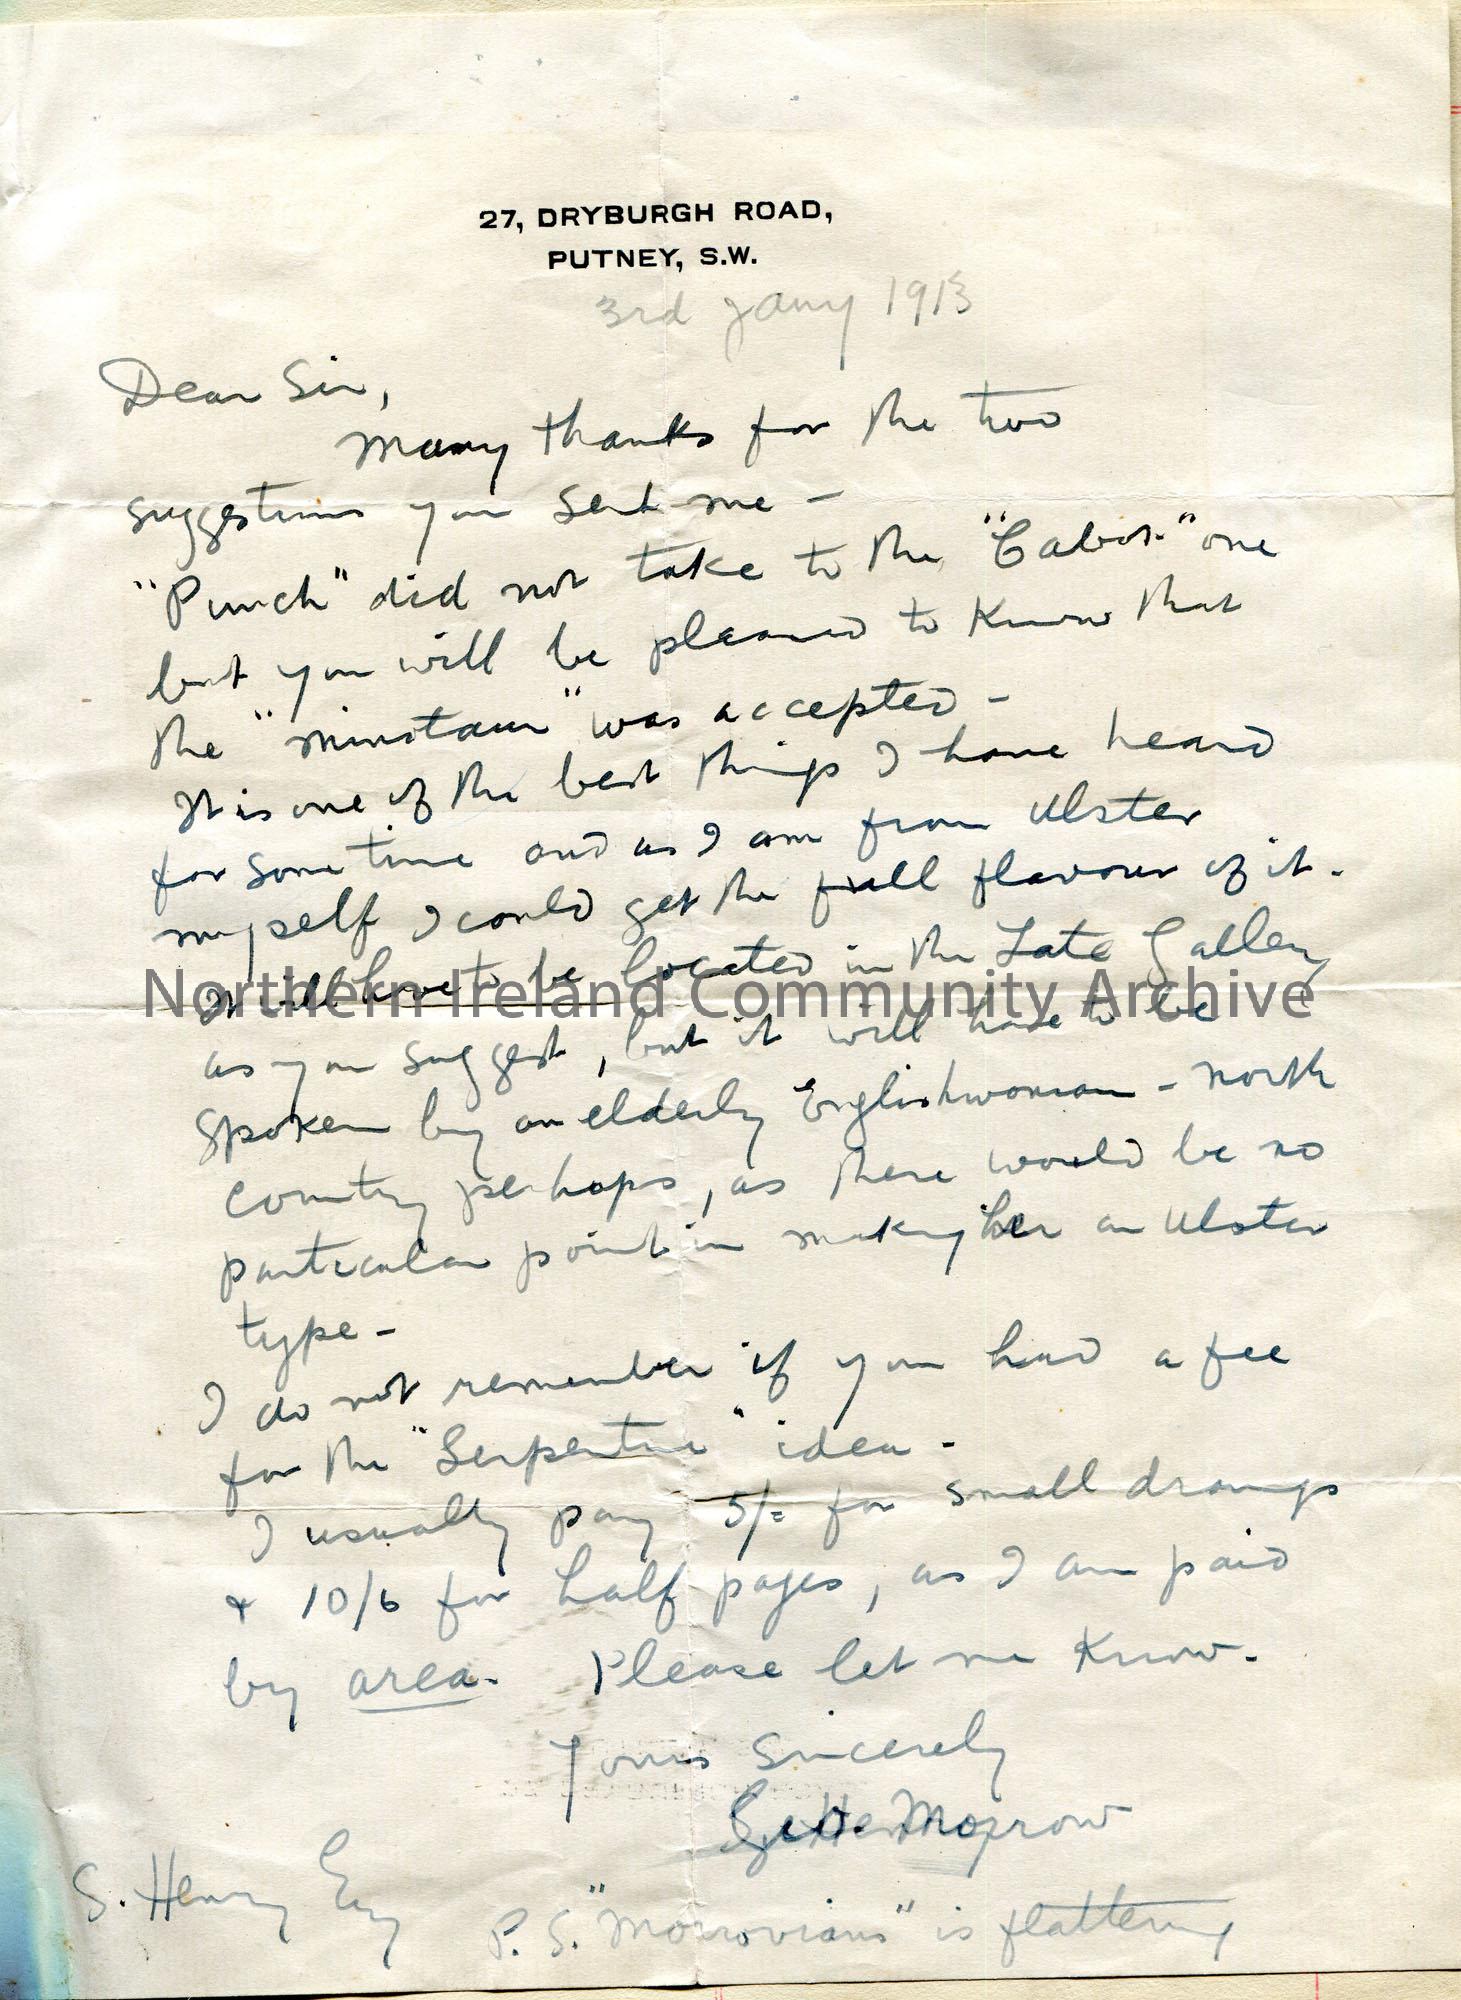 27, DRYBURGH ROAD,
PUTNEY, S.W.
3rd Jany 1913
Dear Sir,
Many thanks for the two
suggestions you sent me –
"Punch" did not take to the "Cabot" one
but you will be pleased to know that
the "minotaur" was accepted –
It is one of the best things I have heard
for some time and as I am from Ulster
myself I could get the full flavour of it.
It will have to be located in the Tate Gallery
Northern Ireland Community Archive
as you suggest, but it will have to be
spoken by an elderly Englishwoman – north
country perhaps, as there would be no
particular point in making her an Ulster
type –
I do not remember if you had a fee
for the "Serpentine" idea –
I usually pay 5/= for small drawings
& 10/6 for half pages, as I am paid
by area. Please let me know.
Yours sincerely
Morrow
S. Henry Esq
P.S. "Morrovians" is flattering